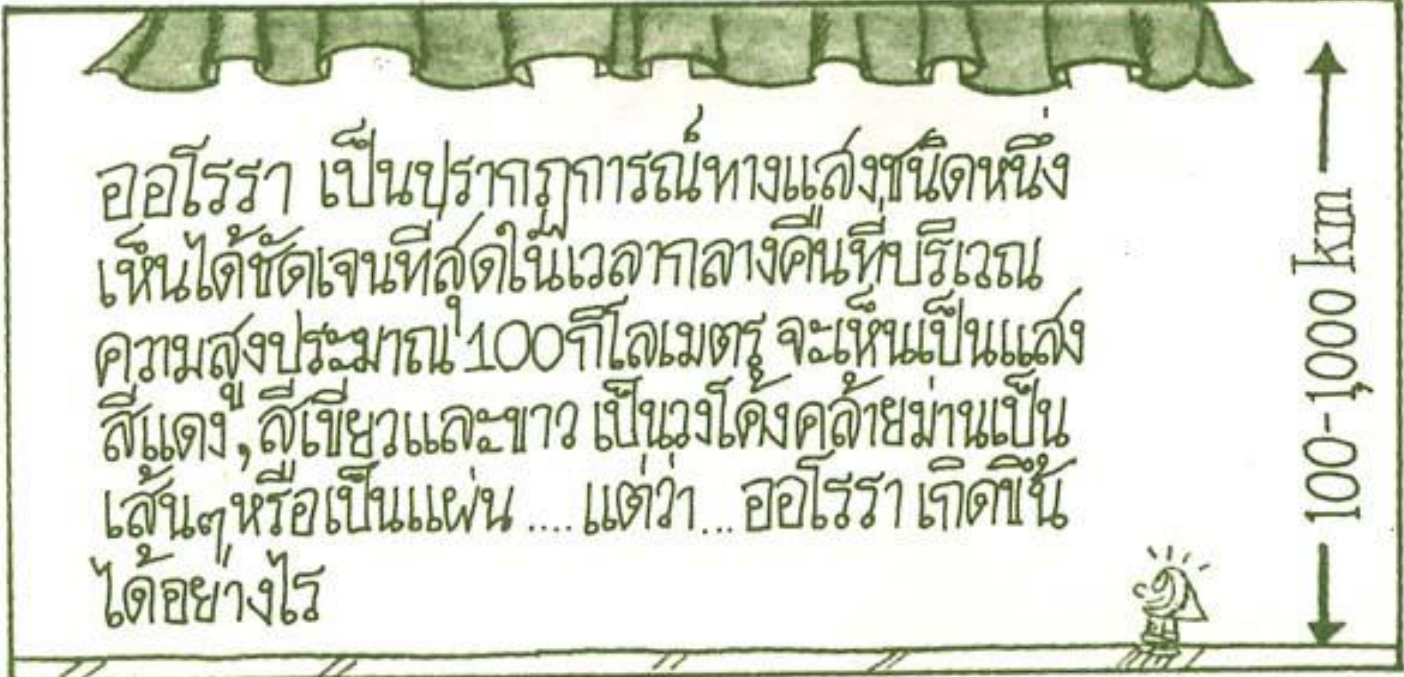 ออโรรา เป็นปรากฏการณ์ทางแสงชนิดหนึ่ง
เห็นได้ชัดเจนที่สุดในเวลากลางคืนที่บริเวณ
ความสูงประมาณ 100 กิโลเมตร จะเห็นเป็นแสง
สีแดง, สีเขียวและขาว เป็นวงโค้งคล้ายม่านเป็น
เส้นๆหรือเป็นแผ่น .... แต่ว่า... ออโรรา เกิดขึ้น
ได้อย่างไร
100-1,000 km